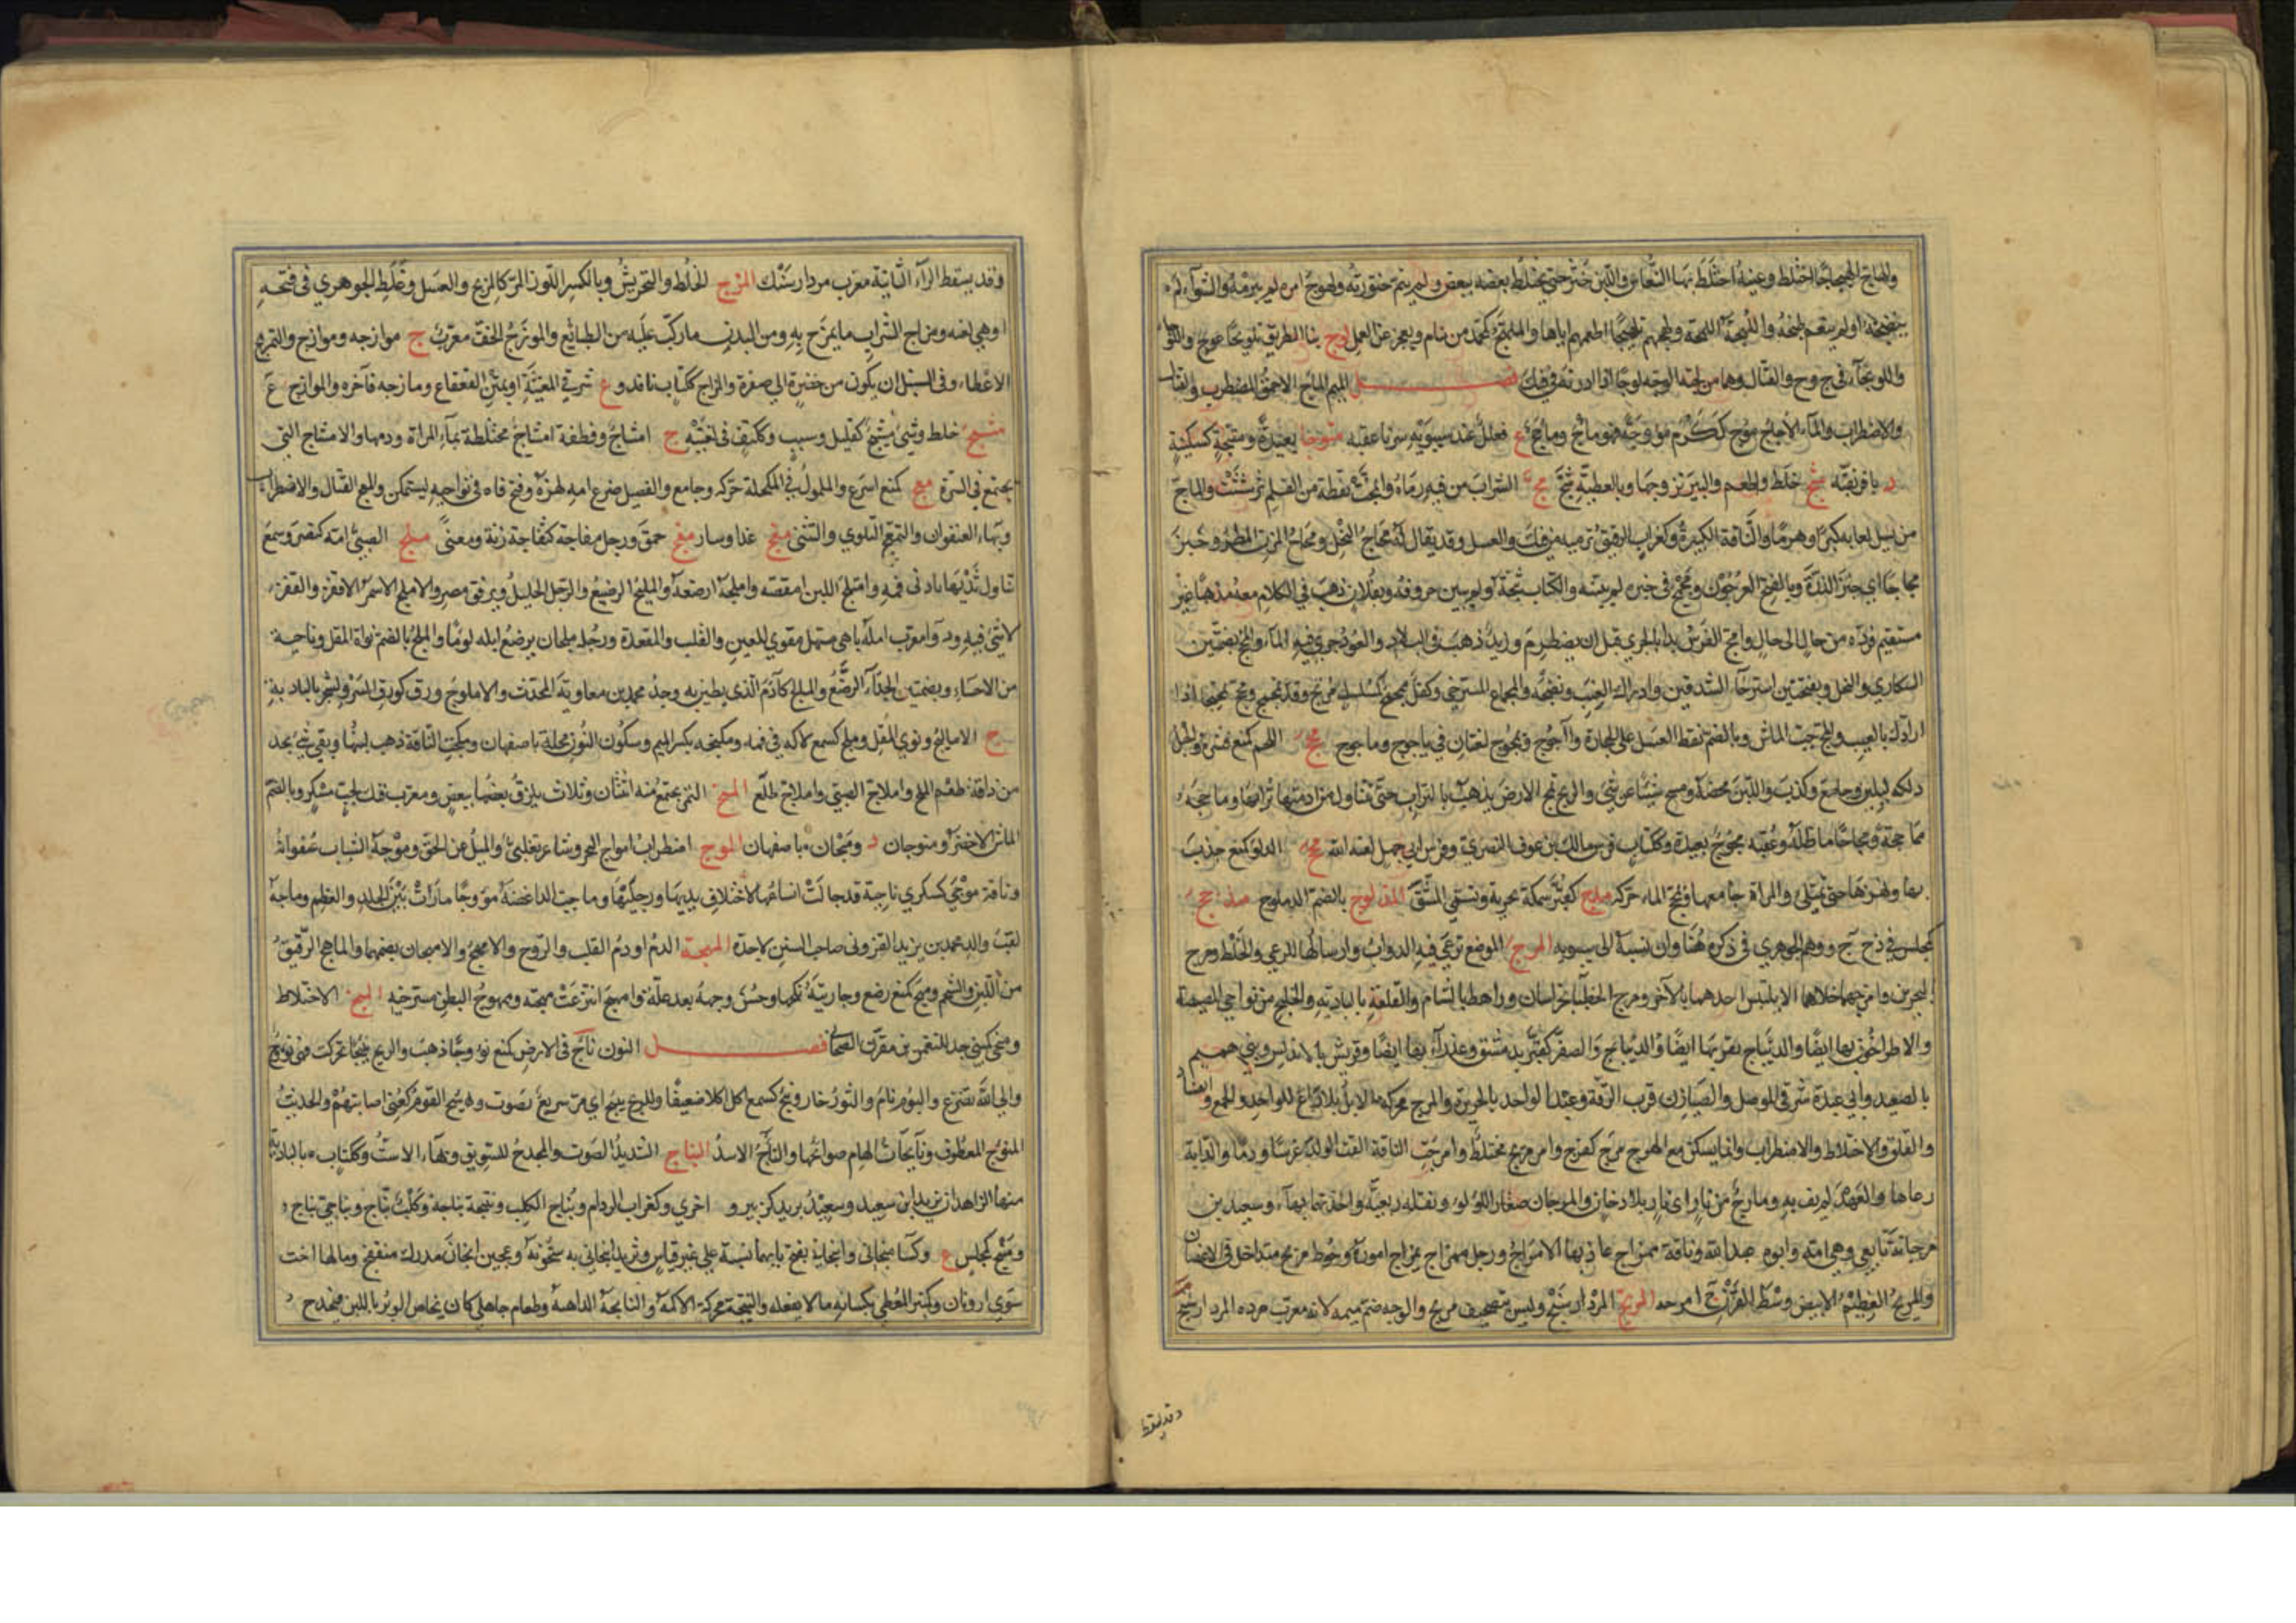 والهاج الهيجاجا اختلط وعينه اختلط بها النعاس واللبن خثر حتى يختلط بعضه ببعض ولم يتم خثورته ولهوج امره لم يبرمه والشواء لم
ينضجه او لم ينعم طبخه واللهجة اللمجة ولهجهم تلهيجا اطعمهم اياها والملهج كمحمد من ينام ويعجز عن العمل لوج بنا الطريق تلويجا عوج واللوجا
واللويجاء في ح وج والقتال وهما من لجته الوجه لوجا اذا ادرته في فيك فصل الميم الماج الاحمق المضطرب والقتال
والاضطراب والماء الاجاج موج ككرم مؤوجة فهو ماج وماجج ع فعلل عند سيبويه سرنا عقبة متوجا بعيدة ومتيجة كسكينة
د بافريقية مثج خلط واطعم والبئر نزوجها وبالعطية مثج مج الشراب من فيه رماه وانمجت نقطة من القلم ترششت والماج
من يسيل لعابه كبرا وهرما والناقة الكبيرة وكغراب الريق ترميه من فيك والعسل وقد يقال له مجاج النحل ومجاج المزن المطر وخبز
مجاجا اي خبز الذرة وبالفتح العرجون ومجمج في خبره لم يبينه والكتاب ثبجه ولم يبين حروفه وبفلان ذهب في الكلام معه مذهبا غير
مستقيم فرده من حال الى حال وامج الفرس بدا بالجري قبل ان يضطرم وزيد ذهب في البلاد والعود جرى فيه الماء والمج بضمتين
السكارى والنحل وبفتحتين استرخاء الشدقين وادراك العنب ونضجه والمجماج المسترخي وكفل ممجمج كمسلسل مرتج وقد تمجمج ومجج تمجيجا اذا
ارادك بالعيب والمج حب الماش وبالضم نقط العسل على الحجارة وآجوج ويمجوج لغتان في ياجوج وماجوج محج اللحم كمنع قشره والحبل
دلكه ليلين وجامع وكذب واللبن مخضه ومسح شيئا عن شئ والريح تمحج الارض تذهب بالتراب حتى تتناول من ادمتها ترابها وماحجه
مماحجة ومحاجا ماطله وعقبة محوج بعيدة وككتاب فرس مالك بن عوف النصري وفرس ابي جهل لعنه الله مخج الدلو كمنع جذب
بها ونهزها حتى تمتلئ والمراة جامعها وتمخج الماء حركه مدج كقبر سمكة بحرية وتسمى المشق المدلوج بالضم الدملوج مذحج
كمجلس في ذح ج ووهم الجوهري في ذكره هنا وان نسبه الى سيبويه المرج الموضع ترعى فيه الدواب وارسالها للرعي والخلط ومرج
البحرين وامرجهما خلاهما لا يلتبس احدهما بالآخر ومرج الخطباء بخراسان وراهط بالشام والقلعة بالبادية والخليج من نواحي المصيصة
والاطراخون بها ايضا والديباج بقربها ايضا والصفر كقبر بدمشق وعذراء بها ايضا وقريش بالاندلس وبني هميم
بالصعيد وابي عبدة شرقي الموصل والضيازن قرب الرقة وعبد الواحد بالجزيرة والمرج محركة الابل بلا راع للواحد والجمع والفساد
والقلق والاختلاط والاضطراب وانما يسكن مع الهرج مرج كفرح وامر مريج مختلط وامرجت الناقة القت الولد غرسا ودما والدابة
رعاها والعهد لم يف به ومارج من نار اي نار بلا دخان والمرجان صغار اللؤلؤ وبقلة ربعية واحدتها بهاء وسعيد بن
مرجانة تابعي وهي امه وابوه عبد الله وناقة ممراج عادتها الامراج ورجل ممراج يمرج اموره وخوط مريج متداخل في الاغصان
والمريج العظيم الابيض وسط القرن ج امرجة المرتج المردارسنج وليس تصحيف مريخ والوجه ضم ميمه لانه معرب مرده المردارسنج
وقد يسقط
وقد يسقط الراء الثانية معرب مردارسنك المزج الخلط والتحريش وبالكسر اللوز المر كالمزيج والعسل وغلط الجوهري في فتحه
او هي لغية ومزاج الشراب ما يمزج به ومن البدن ما ركب عليه من الطبائع والموزج الخف معرب ج موازجة وموازج والتمزيج
الاعطاء وفي السنبل ان يكون من خضرة الى صفرة والمزاج ككتاب ناقة وع شرقي المغيثة او يمين القعقاع ومازجه فاخره والموازج ع
مشج خلط وشئ مشيج كقتيل وسبب وكتف في لغتيه ج امشاج ونطفة امشاج مختلطة بماء المراة ودمها والامشاج التي
تجتمع في السرة معج كمنع اسرع والملمول في المكحلة حركه وجامع والفصيل ضرع امه لهزه وفتح فاه في نواحيه ليستمكن والمعج القتال والاضطراب
وبهاء العنفوان والتمعج التلوي والتثني مغج عدا وسار مفج حمق ورجل مفاجة كنفاجة زنة ومعنى ملج الصبي امه كنصر وسمع
تناول ثديها بادنى فمه وامتلج اللبن امتصه واملجه ارضعه والمليج الرضيع والرجل الجليل وة بريف مصر والاملج الاسمر الافقر والقفر
لا شئ فيه ودواء معرب امله باهي مسهل مقوي للعين والقلب والمقعدة ورجل ملجان يرضع ابله لوما والملج بالضم نواة المقل وناحية
من الاحساء وبضمتين الجداء الرضع والمالج كآدم الذي يطين به وجد محمد بن معاوية المحدث والاملوج ورق كورق السرو لشجر بالبادية
ج الاماليج ونوى المقل وملج كسمع لاكه في فمه وملنجة بكسر الميم وسكون النون محلة باصفهان وملجت الناقة ذهب لبنها وبقي شئ يجد
من ذاقه طعم الملح واملاج الصبي واملاج طلع المنج التمر يجتمع منه اثنتان وثلاث يلزق بعضها ببعض ومعرب منك لحب مسكر وبالضم
الماش الاخضر ومنوجان د ومنجان ة باصفهان الموج اضطراب امواج البحر وشاعر تغلبي والميل عن الحق وموجة الشباب عنفوانه
وناقة موجى كسكرى ناجية قد جالت انساعها لاختلاف يديها ورجليها وماجت الداغصة مؤوجا مارت بين الجلد والعظم وماجه
لقب والد محمد بن يزيد القزويني صاحب السنن لا جده المهجة الدم او دم القلب والروح والامهج والامهجان بضمهما والماهج الرقيق
من اللبن والشحم ومهج كمنع رضع وجاريته نكحها وحسن وجهه بعد علة وامتهج انتزعت مهجته وممهوج البطن مسترخيه الميج الاختلاط
وميجى كميسى جد للنعمن بن مقرن الصحابي فصل النون نأج في الارض كمنع نؤوجا ذهب والريح نئيجا تحركت فهي نؤوج
والى الله تضرع والبوم نام والثور خار ونئج كسمع اكل اكلا ضعيفا وللريح نئيج اي مر سريع بصوت ونئج القوم كعني اصابتهم والحديث
المنؤوج المعطوف ونائجات الهام صوائحها والنأج الاسد النباج الشديد الصوت والمجدح للسويق وبهاء الاست وككتاب ة بالبادية
منها الزاهدان يزيد ابن سعيد وسعيد بن يزيد كزبير و اخرى وكغراب الردام ونباج الكلب ونبيجه نباحه وكلب نباج ونباجي نباح
ومنبج كمجلس ع وكساء منبجاني وانبجاني بفتح بائهما نسبة على غير قياس وثريد انبجاني به سخونة وعجين انبجان مدرك منتفخ وما لها اخت
سوى ارونان وكمنبر المعطي بلسانه ما لا يفعله والنبجة محركة الاكمة والنابجة الداهية وطعام جاهلي كان يخاض الوبر باللبن فيجدح